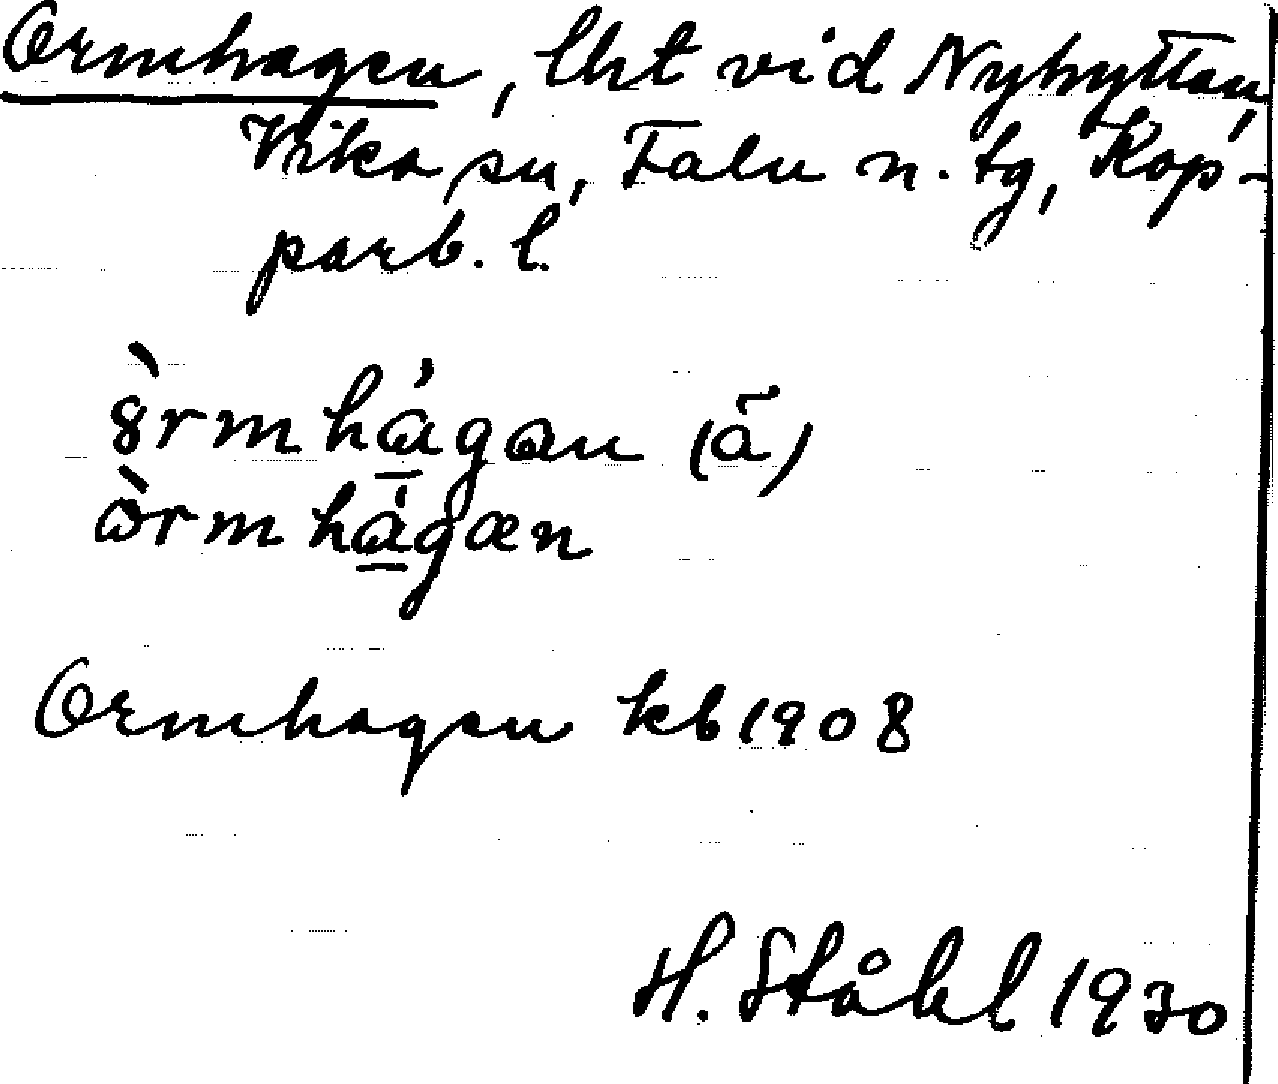 Ormhagen, lht vid Nyhyttan,
Vika sn, Falu n. tg, Kop-
parb. l.
ȣ̀rmhágan (ā)
ὼrmhágæn
Ormhagen kb 1908
H. Ståhl 1930